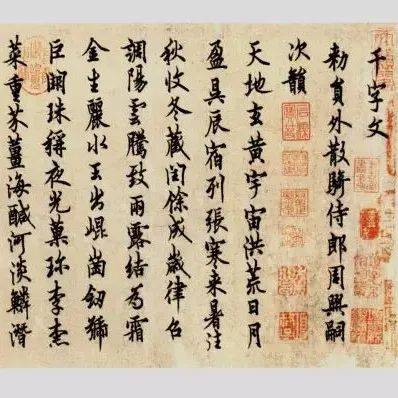 千字文
勑員外散騎侍郎周興嗣
次韻
天地玄黃宇宙洪荒日月
盈昃辰宿列張寒来暑往
秋收冬藏閏餘成歲律召
調陽雲騰致雨露結為霜
金生麗水玉出崐崗劒號
巨闕珠稱夜光菓珍李柰
菜重芥薑海鹹河淡鱗潛